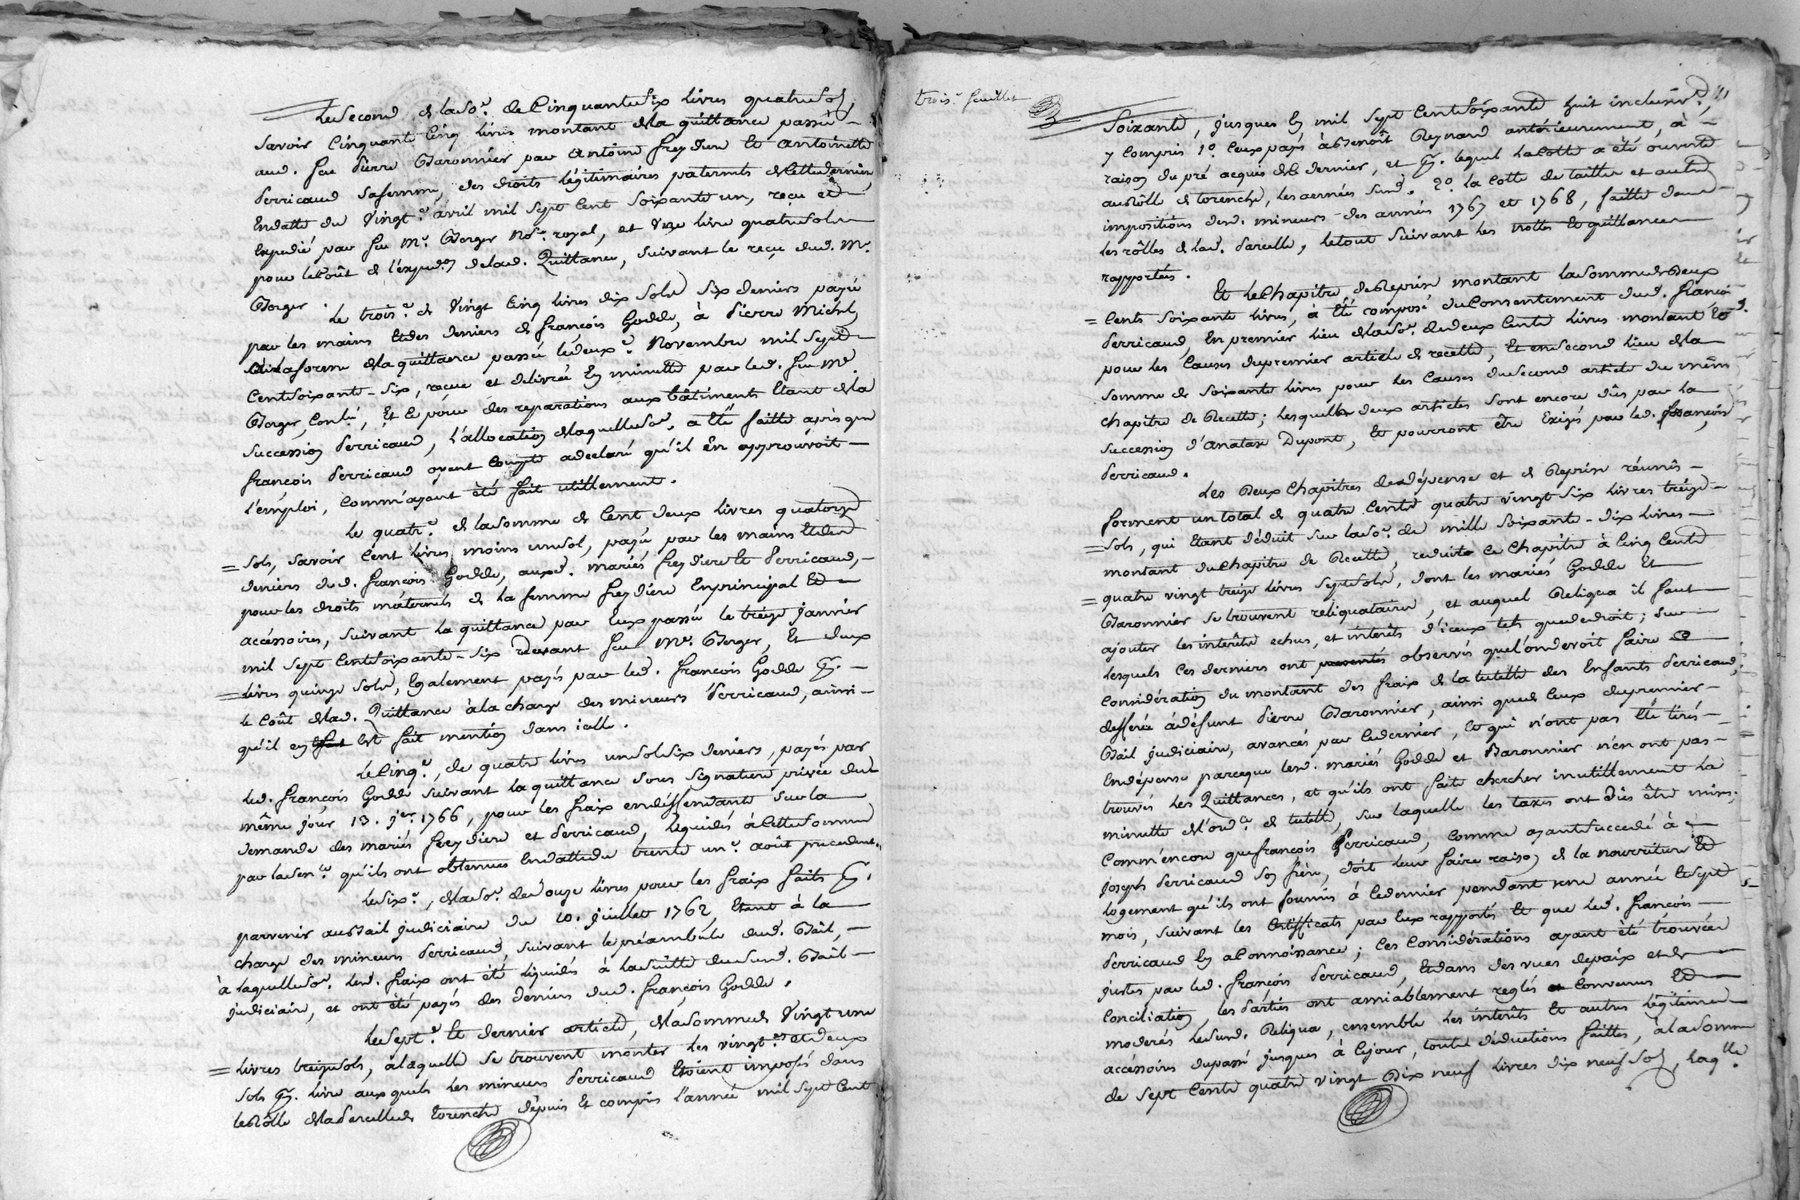 Le Second de la So.e de Cinquante Six livres quatre Sols,
Savoir Cinquante Cinq livres montant de la quittance passée
aud. feu Pierre Baronnier par Antoine freydiere et Antoinette
Perricaud sa femme, des droits légitimaires paternels de cette derniere
En datte du Vingt.e avril mil Sept Cent Soixante un, reçu et
Expedié par feu M.e Berger No.re royal, et Une livre quatre Sols
pour le Coût de l'expéd.on de lad. Quittance, suivant le reçu dud. M.e
Berger.
Le trois.e de Vingt Cinq livres dix Sols Six deniers payée
par les mains Et des deniers de françois Godde, à Pierre Michel
à la forme de la quittance passée le deux.e Novembre mil Sept
Cent Soixante-Six, reçue et délivrée En minutte par led. feu M.e
Berger, Et ce pour des reparations aux bâtiments Etant de la
Succession Perricaud, l'allocation de laquelle So.e a été faitte après que
françois Perricaud oyant Compte a declaré qu'il En approuvoit
l'émploi, comm'ayant été fait utillement.
Le quatr.e de la Somme de Cent deux livres quatorze
Sols, Savoir Cent livres moins un sol, payée par les mains Et des
deniers dud. françois Godde, auxd. mariés freydiere Et Perricaud,
pour les droits máternels de la femme freydière En principal Et
accéssoires, suivant la quittance par Eux passée le treize janvier
mil Sept Cent Soixante-Six recevant feu M.e Berger, Et deux
livres quinze Sols, Egalement payés par led. françois Godde p.r
le Coût de lad. Quittance à la charge des mineurs Perricaud, ainsi
qu'il en Est fait mention dans icelle.
Le Cinq.e, de quatre livres un Sol Six deniers, payés par
led. françois Godde suivant la quittance Sous Signature privée du
même jour 13. j.er 1766, pour les fraix en déffendants Sur la
demande des mariés freydiere et Perricaud, liquidés à Cette Somme
par la Sen.ce qu'ils ont obtenues En datte du trente un.e août précédent.
Le Six.e, de la So.e de douze livres pour les fraix faits p.r
parvenir au Bail judiciaire du 10. juillet 1762, Etant à la
charge des mineurs Perricaud, suivant le préambule dud. Bail,
à laquelle So.e lesd. fraix ont été liquidés à la Suitte du Susd. Bail
judiciaire, et ont été payés des deniers dud. françois Godde.
Le Sept.e Et dernier article, de la Somme de Vingt une
livres treize Sols, à laquelle se trouvent monter les vingt.es et deux
Sols p.r livre aux quels les mineurs Perricaud Etoient imposés dans
le Rôlle de la Parcelle de torenche, dépuis Et compris l'année mil Sept Cent
trois.e feuillet
Soixante, jusques En mil Sept Cent Soixante huit inclusiv.t,
y compris 1.o Ceux payés à Benoît Reynard antérieurement, à
raison du pré acquis de Ce dernier, et p.r lequel la Cotte a été ouverte
au Rôlle de torenche, les années Suiv. 2.o la Cotte de taille et autres
impositions desd. mineurs des années 1767 et 1768, faitte dans
les rôlles de lad. Parcelle, letout Suivant les nottes Et quittances
rapportées.
Et le Chapitre de Reprise montant la Somme de Deux
Cents Soixante livres, à été composé du Consentement dud. françois
Perricaud, En premier lieu de la So.e de deux Cents livres montant
pour les Causes du premier article de recette, Et en Second lieu de la
Somme de Soixante livres pour les Causes du Second article du même
chapitre de Recette; lesquelles deux articles sont encore dûs par la
Succession d'Anataze Dupont, Et pourront être Exigés par led. françois
Perricaud.
Les Deux Chapitres de dépense et de Reprise réunis
forment un total de quatre Cents quatre vingt Six livres treize
Sols, qui étant déduit Sur la So.e de mille Soixante-Dix livres
montant du Chapitre de Recette, reduite Ce Chapitre à Cinq Cents
quatre vingt treize livres Sept Sols, dont les mariés Godde Et
Baronnier se trouvent reliquataires, et auquel Reliqua il faut
ajouter les intérêts echus, et intérêts d'iceux tels que de droit; Sur
lesquels Ces derniers ont observés quel'on devoit faire
Considération du montant des fraix de la tutelle des Enfants Perricaud,
defferée à défunt Pierre Baronnier, ainsi que de Ceux du premier
Bail judiciaire, avancés par Ce dernier, Et qui n'ont pas été tirés
En dépense parce que lesd. mariés Godde et Baronnier n'en ont pas
trouvés les Quittances, et qu'ils ont faits chercher inutillement la
minutte de l'ord.ce de tutelle, Sur laquelle les taxes ont dûs être mises;
Comm'encore que françois Perricaud, Comme ayant Succedé à
Joseph Perricaud Son frère, doit leur faire raison de la nourriture Et
Logement qu'ils ont fournis à Ce dernier pendant une année Et Sept
mois, suivant les Certifficats par Eux rapportés Et que led. françois
Perricaud En a Connoissance; Ces Considérations ayant été trouvées
justes par led. françois Perricaud, Et dans des vues de paix et de
Conciliation, les Parties ont amiablement reglés Convenus Et
moderés le Susd. Reliqua, ensemble les intérêts Et autres légitimes
accéssoires du passé jusques à Ce jour, toutes déductions faittes, à la Somme
de Sept Cents quatre vingt Dix neuf livres dix neuf Sols, laq.lle